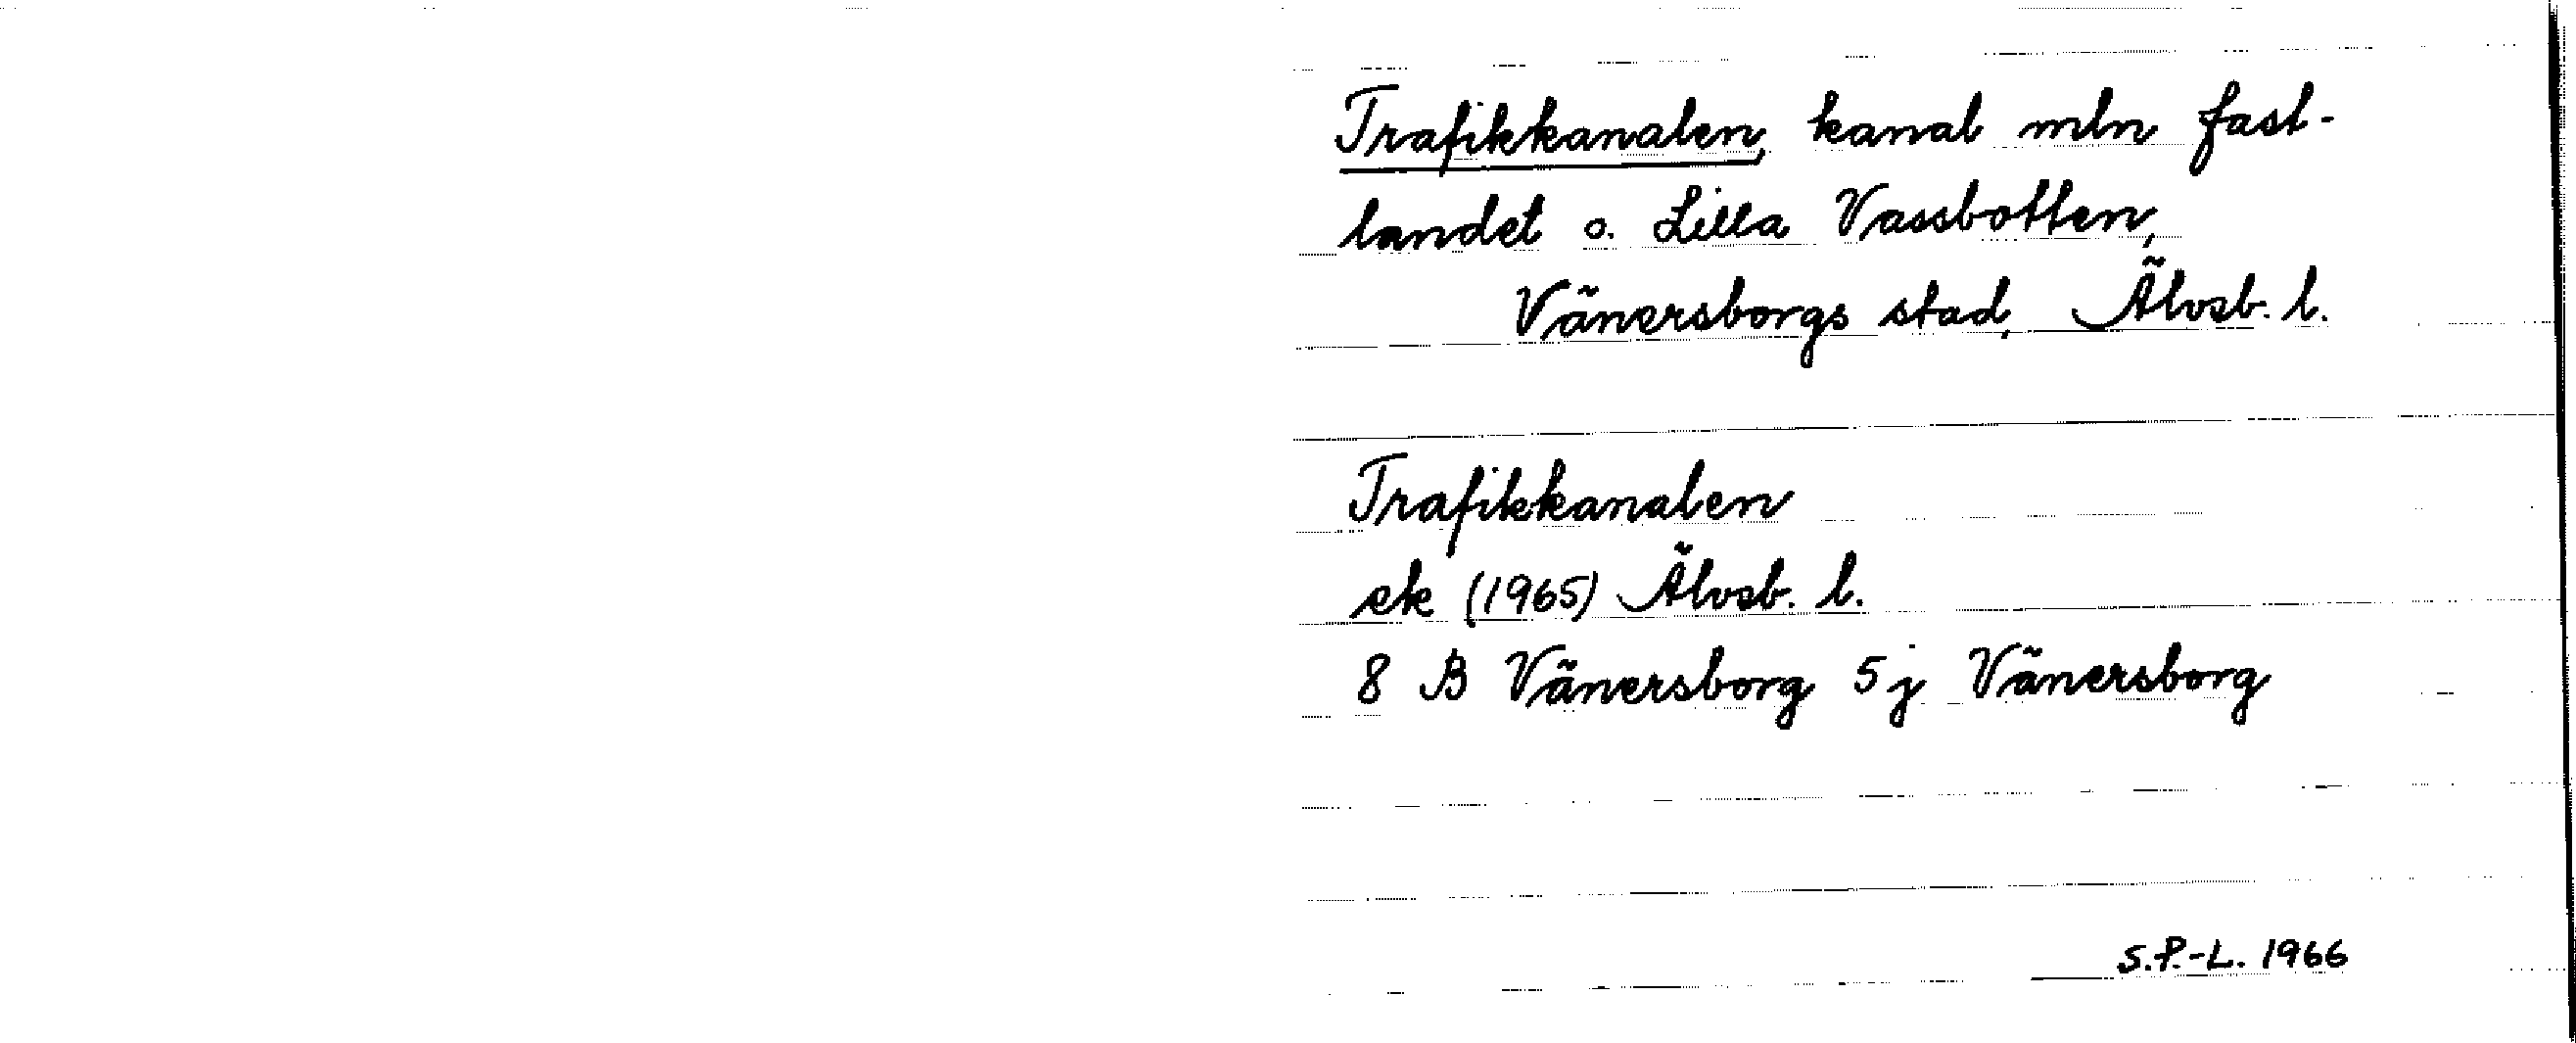 Trafikkanalen, kanal mln fast-
landet o. Lilla Vassbotten,
Vänersborgs stad, Älvsb. l.
Trafikkanalen
ek (1965) Älvsb. l.
8 B Vänersborg 5 j Vänersborg
S.P.-L. 1966